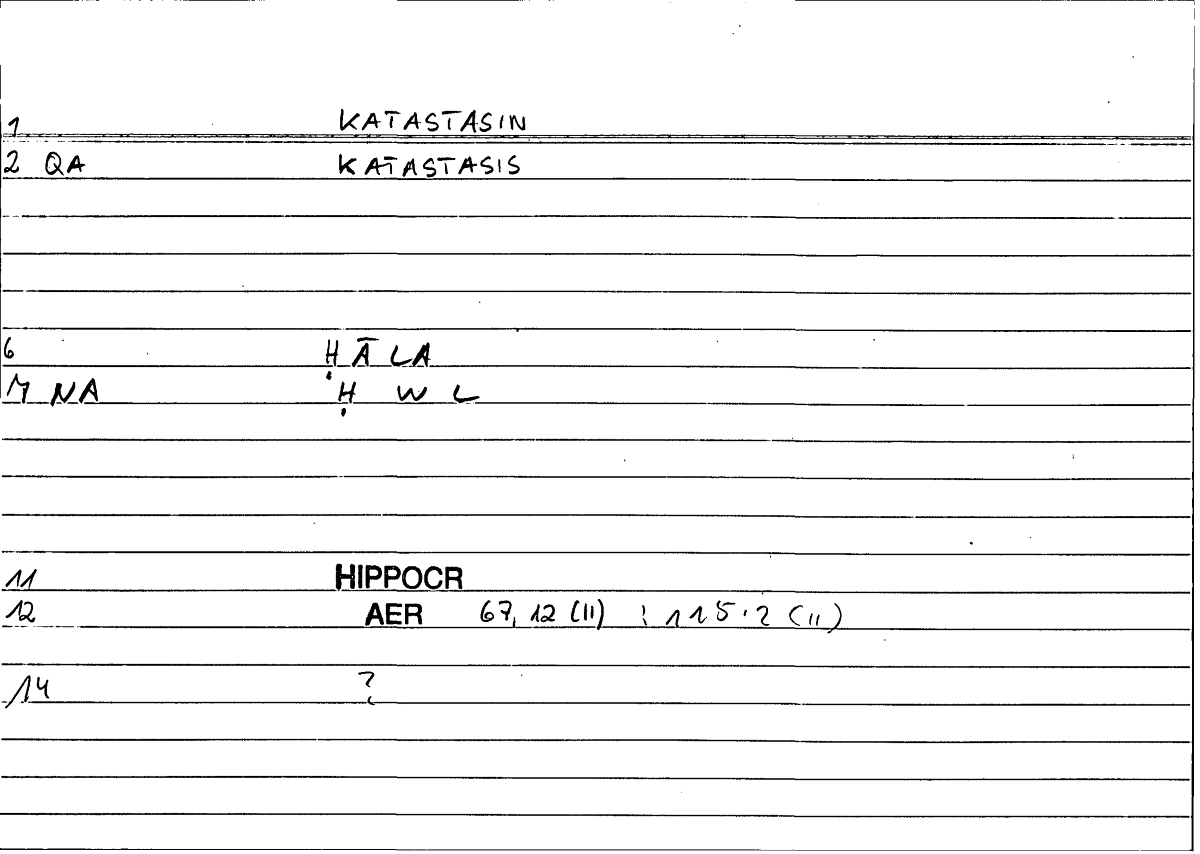 1 KATASTASIN
2 QA KATASTASIS
6 ḤĀLA
7 NA Ḥ W L
11 HIPPOCR
12 AER 67, 12 (11) ; 115.2 (11)
14 ?